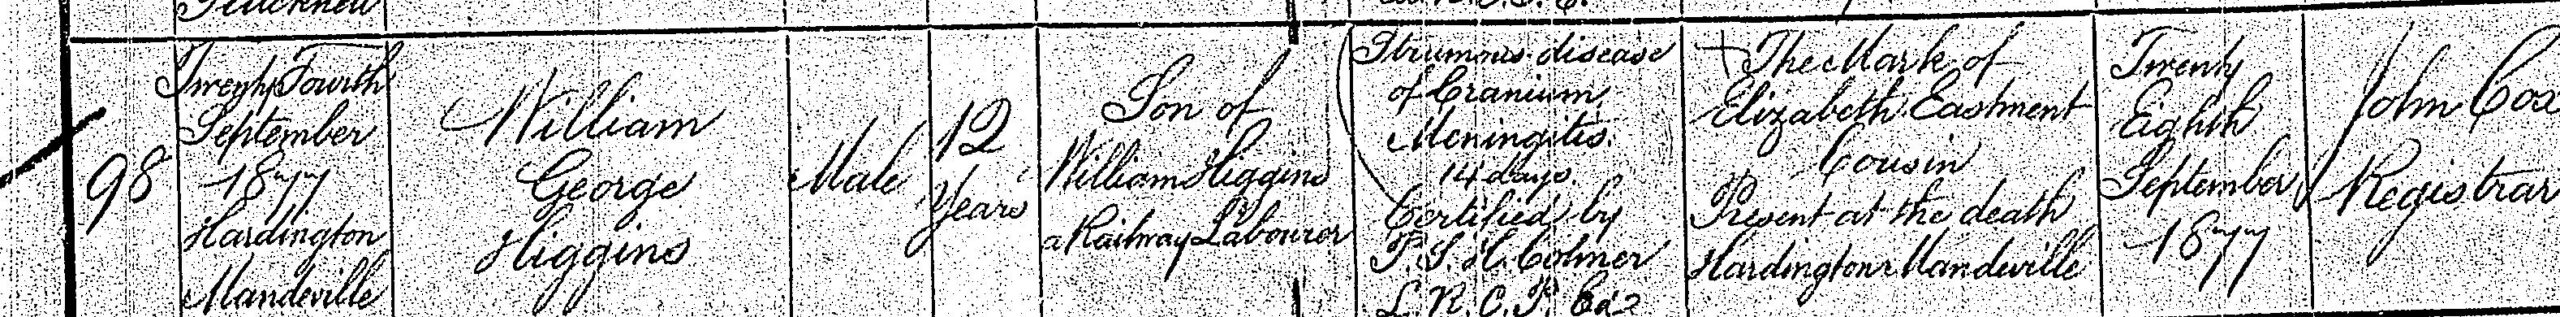 98
Twenty Fourth
September
1877
Hardington
Mandeville
William
George
Higgins
Male
12
Years
Son of
William Higgins
a Railway Labourer
Strumous disease
of Cranium
Meningitis.
14 days.
Certified by
P. S. H. Colmer
L. R. C. P. Ed
The Mark of
Elizabeth Eastment
Cousin
Present at the death
Hardington Mandeville
Twenty
Eighth
September
1877
John Cox
Registrar